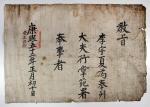 敎旨
李宇夏爲奉列
大夫行掌苑署
奉事者
康熙五十三年正月初十日